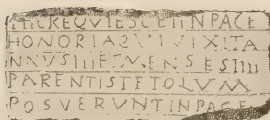 HICREQVIESCETINPACE
HONORIAQVIVIXITA
NNVSIIIETMENSESIII
PARENTISTETOLVM
POSVERVNTINPACE